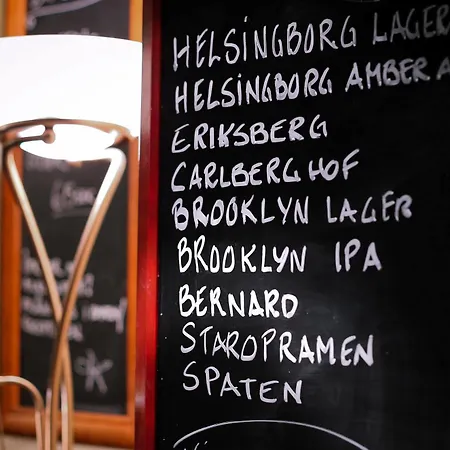 HELSINGBORG LAGER
HELSINGBORG AMBER A
ERIKSBERG
CARLBERG HOF
BROOKLYN LAGER
BROOKLYN IPA
BERNARD
STAROPRAMEN
SPATEN